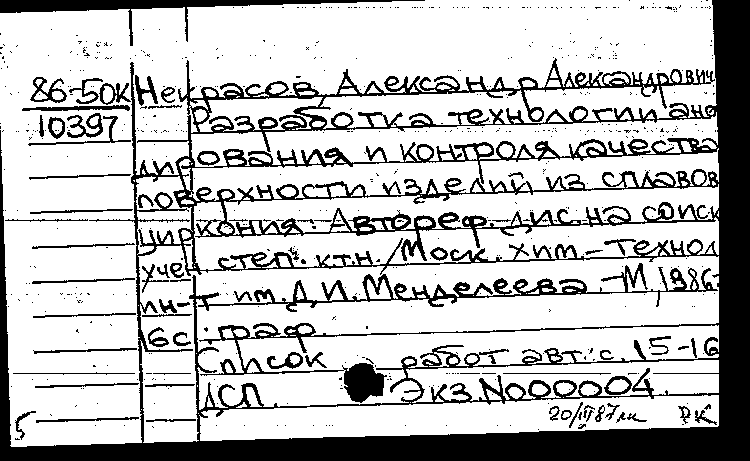 86-50к Некрасов, Александр Александрович
10397 Разработка технологии ано
дирования и контроля качества
поверхности изделий из сплавов
циркония: Автореф. дис. на соиск
учен степ. к.т.н. /Моск. хим.-технол
ин-т им. Д.И. Менделеева. -М, 1986-
16с :граф.
Список работ авт.: с. 15-16
ДСП. Экз. №000004.
5